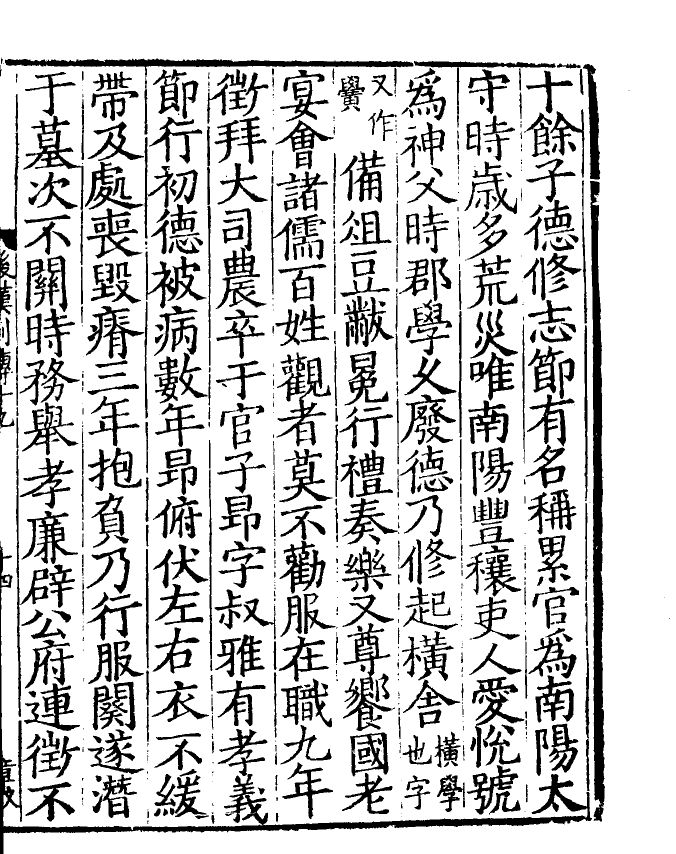 十餘子德修志節有名稱累官爲南陽太
守時歳多荒災唯南陽豐穰吏人愛悅號
爲神父時郡學乆廢德乃修起橫舍橫學也字
又作黌備俎豆黻冕行禮奏樂又尊饗國老
宴會諸儒百姓觀者莫不勸服在職九年
徵拜大司農卒于官子昂字叔雅有孝義
節行初德被病數年昂俯伏左右衣不緩
帶及處喪毀瘠三年抱負乃行服闋遂潛
于墓次不關時務舉孝廉辟公府連徵不
後漢列傳十九
十四